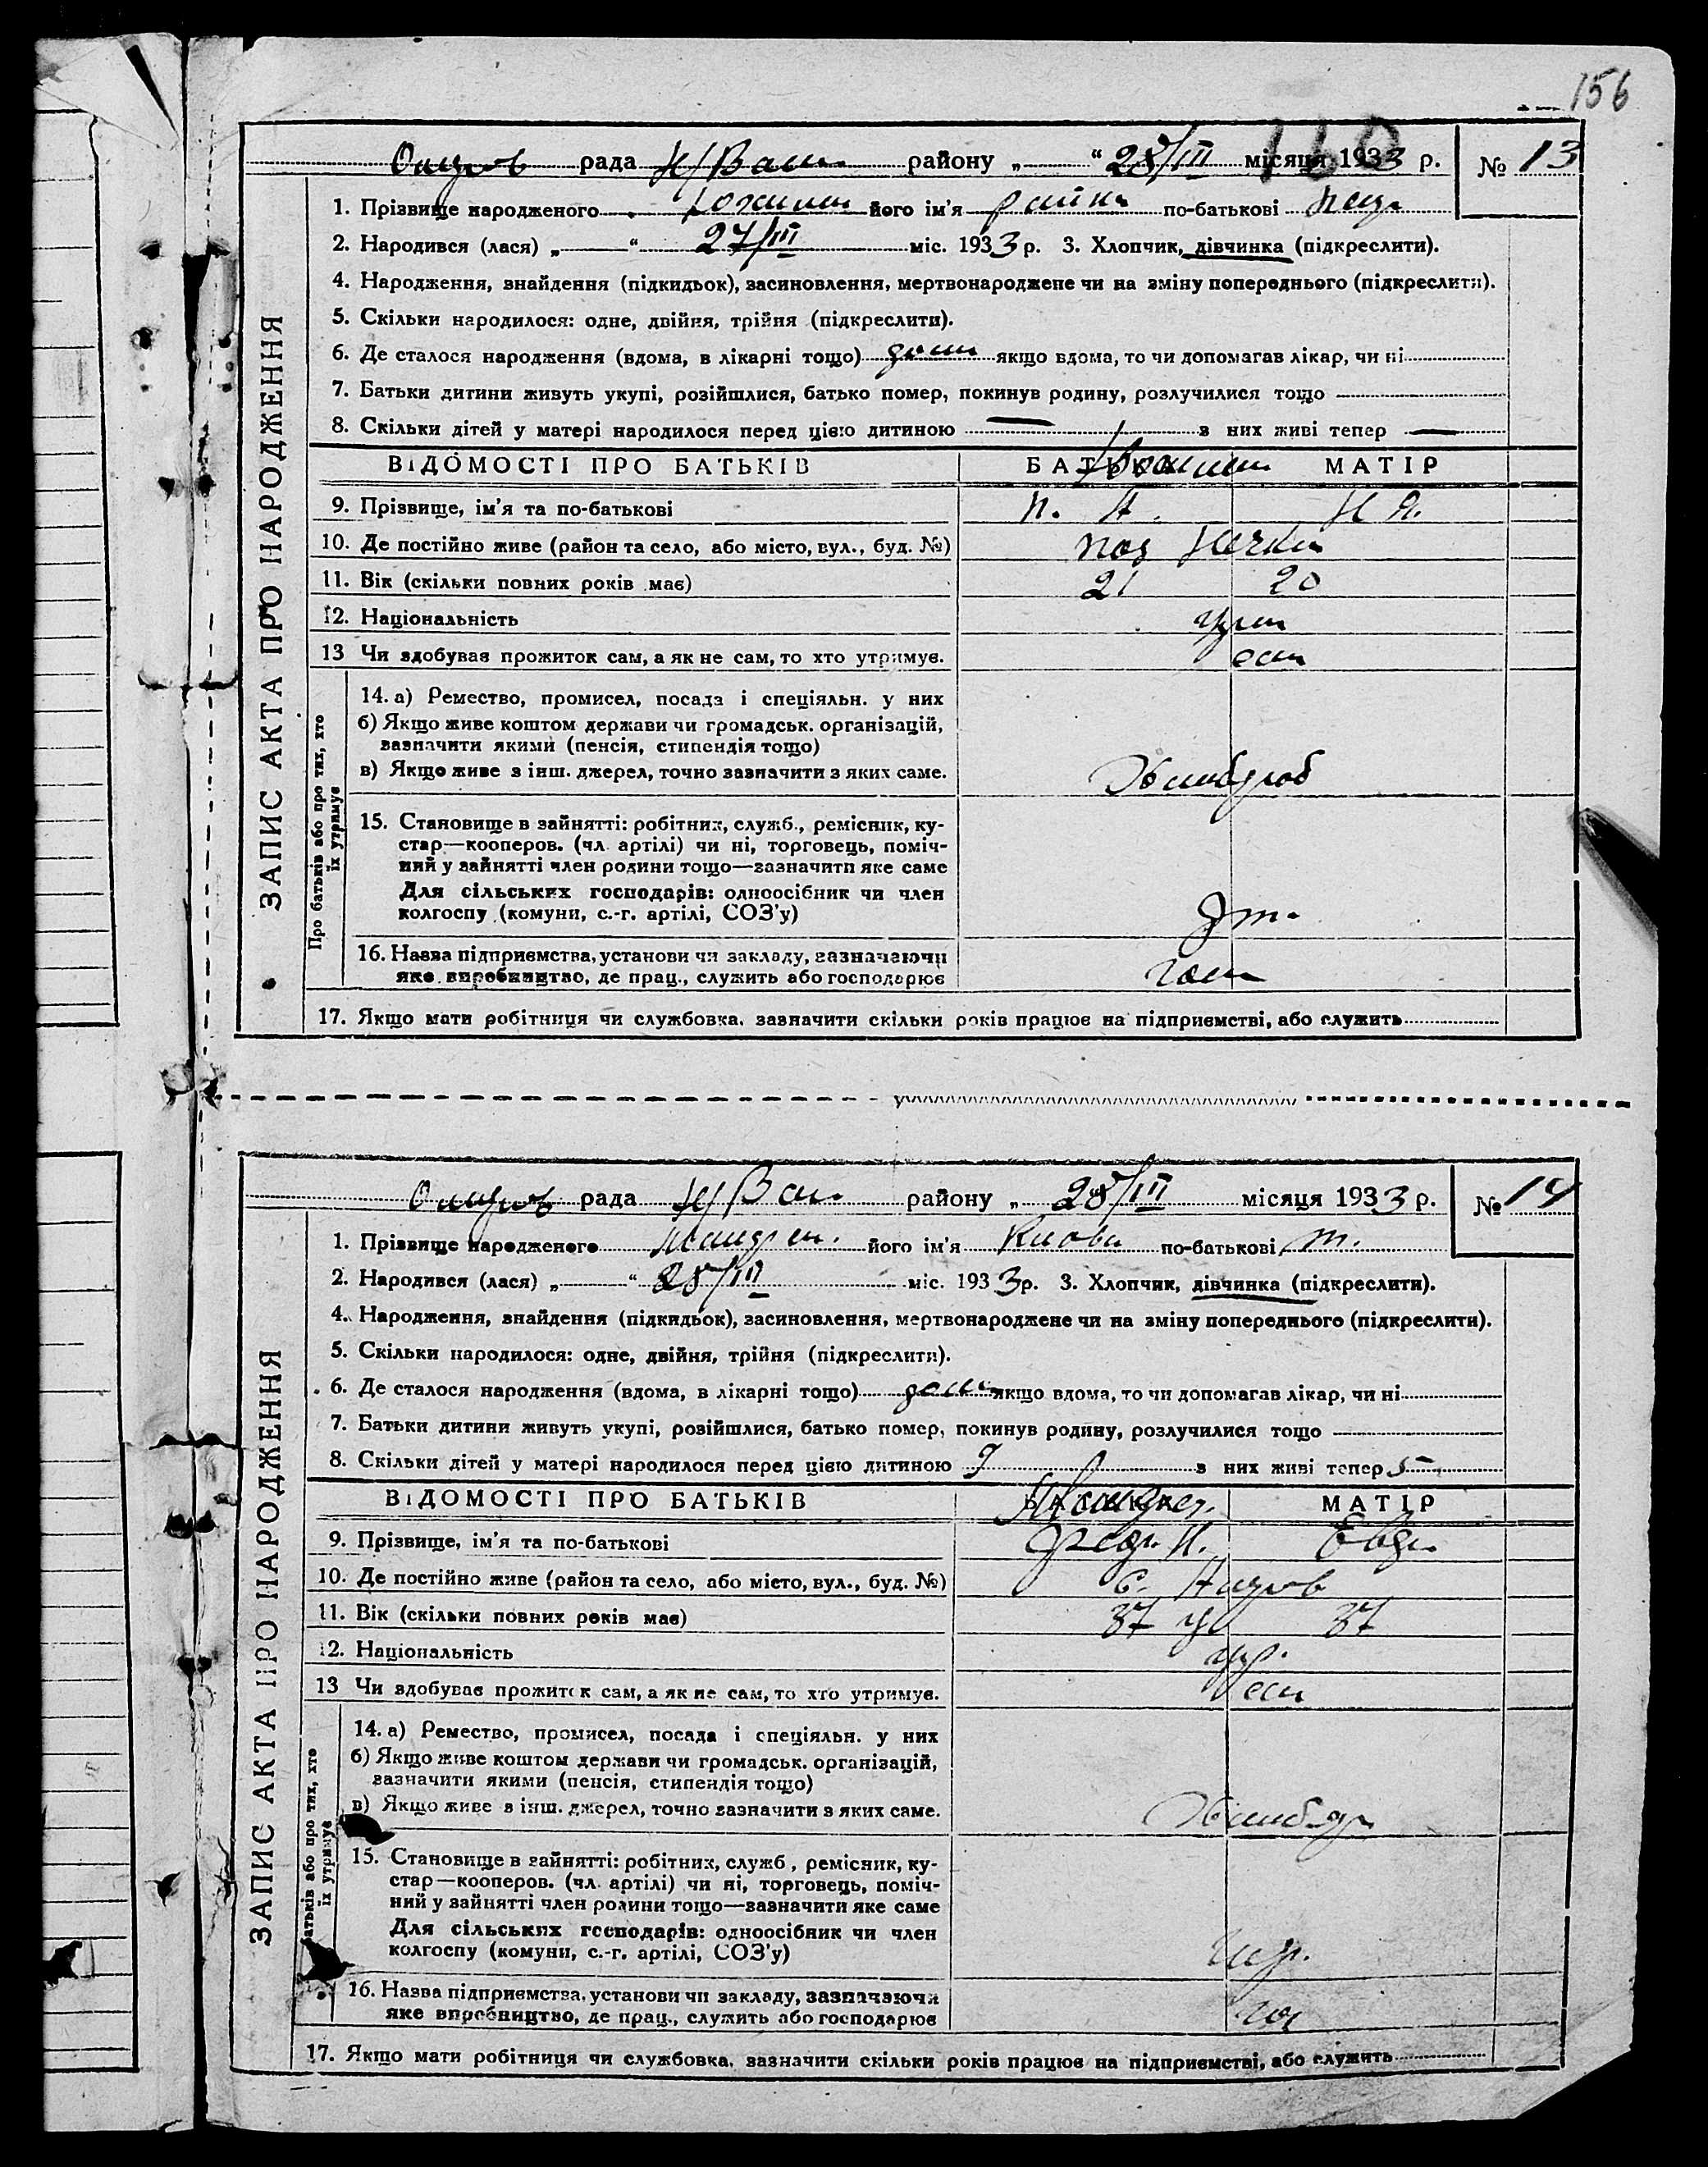 156
110
рада району „ “ 28/III місяця 1933 р. № 13
1. Прізвище народженого його ім'я по-батькові
2. Народився (лася) „ “ 27/III міс. 1933 р. 3. Хлопчик, дівчинка (підкреслити).
4. Народження, знайдення (підкидьок), засиновлення, мертвонароджене чи на зміну попереднього (підкреслити).
5. Скільки народилося: одне, двійня, трійня (підкреслити).
6. Де сталося народження (вдома, в лікарні тощо) дома якщо вдома, то чи допомагав лікар, чи ні
7. Батьки дитини живуть укупі, розійшлися, батько помер, покинув родину, розлучилися тощо
8. Скільки дітей у матері народилося перед цією дитиною — з них живі тепер —
ВІДОМОСТІ ПРО БАТЬКІВ БАТЬКА МАТІР
9. Прізвище, ім'я та по-батькові П. А. Н Я.
10. Де постійно живе (район та село, або місто, вул., буд. №)
11. Вік (скільки повних років має) 21 20
12. Національність
13 Чи здобуває прожиток сам, а як не сам, то хто утримує.
14. а) Ремество, промисел, посада і спеціяльн. у них
б) Якщо живе коштом держави чи громадськ. організацій,
зазначити якими (пенсія, стипендія тощо)
в) Якщо живе з інш. джерел, точно зазначити з яких саме.
Хлібороб
15. Становище в зайнятті: робітник, служб., ремісник, ку-
стар—кооперов. (чл. артілі) чи ні, торговець, поміч-
ний у зайнятті член родини тощо—зазначити яке саме
Для сільських господарів: одноосібник чи член
колгоспу (комуни, с.-г. артілі, СОЗ'у)
16. Назва підприємства, установи чи закладу, зазначаючи
яке виробництво, де прац., служить або господарює
17. Якщо мати робітниця чи службовка, зазначити скільки років працює на підприємстві, або служить
ЗАПИС АКТА ПРО НАРОДЖЕННЯ
Про батьків або про тих, хто
їх утримує
рада району „ 28/III місяця 1933 р. № 14
1. Прізвище народженого його ім'я по-батькові
2. Народився (лася) „ “ 28/III міс. 1933 р. 3. Хлопчик, дівчинка (підкреслити).
4. Народження, знайдення (підкидьок), засиновлення, мертвонароджене чи на зміну попереднього (підкреслити).
5. Скільки народилося: одне, двійня, трійня (підкреслити).
6. Де сталося народження (вдома, в лікарні тощо) дома якщо вдома, то чи допомагав лікар, чи ні
7. Батьки дитини живуть укупі, розійшлися, батько помер, покинув родину, розлучилися тощо
8. Скільки дітей у матері народилося перед цією дитиною з них живі тепер 5
ВІДОМОСТІ ПРО БАТЬКІВ БАТЬКА МАТІР
9. Прізвище, ім'я та по-батькові
10. Де постійно живе (район та село, або місто, вул., буд. №) с.
11. Вік (скільки повних років має) 37 37
12. Національність укр.
13 Чи здобуває прожиток сам, а як не сам, то хто утримує.
14. а) Ремество, промисел, посада і спеціяльн. у них
б) Якщо живе коштом держави чи громадськ. організацій,
зазначити якими (пенсія, стипендія тощо)
в) Якщо живе з інш. джерел, точно зазначити з яких саме.
15. Становище в зайнятті: робітник, служб., ремісник, ку-
стар—кооперов. (чл. артілі) чи ні, торговець, поміч-
ний у зайнятті член родини тощо—зазначити яке саме
Для сільських господарів: одноосібник чи член
колгоспу (комуни, с.-г. артілі, СОЗ'у)
16. Назва підприємства, установи чи закладу, зазначаючи
яке виробництво, де прац., служить або господарює
17. Якщо мати робітниця чи службовка, зазначити скільки років працює на підприємстві, або служить
ЗАПИС АКТА ПРО НАРОДЖЕННЯ
батьків або про тих, хто
їх утримує